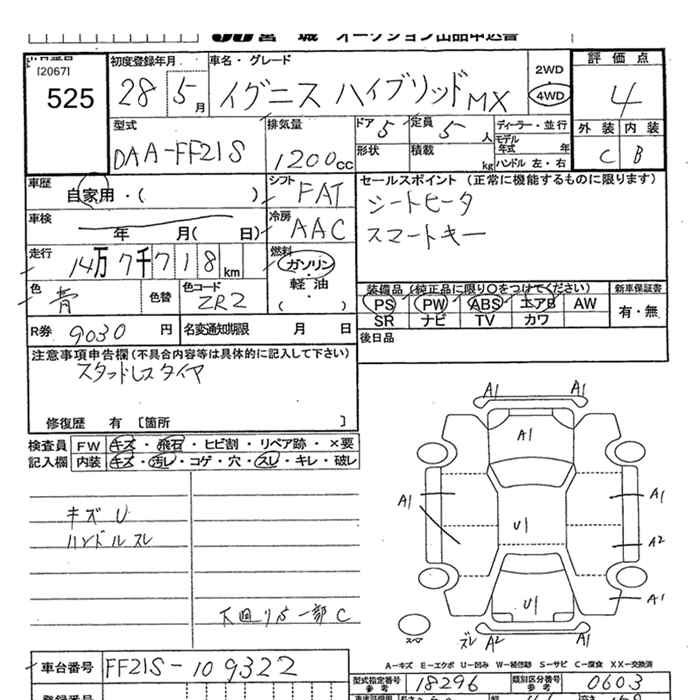 JU宮 城 オークション出品申込書
[2067]
525
初度登録年月
28 5月
車名・グレード
イグニス ハイブリッド MX
2WD
4WD
評価点
4
外装 内装
C B
型式
DAA-FF21S
排気量
1200cc
ドア
5
定員
5人
形状
積載
kg
ディーラー・並行
モデル年式 年
ハンドル 左・右
車歴
自家用・( )
シフト
FAT
セールスポイント (正常に機能するものに限ります)
シートヒータ
スマートキー
車検
年 月( 日)
冷房
AAC
走行
14万7千718km
燃料
ガソリン
軽油
( )
色
青
色替
色コード
ZR2
装備品 (純正品に限り○をつけてください)
PS PW ABS エアB AW
SR ナビ TV カワ
新車保証書
有・無
R券 9030 円
名変通知期限 月 日
後日品
注意事項申告欄 (不具合内容等は具体的に記入して下さい)
スタッドレスタイヤ
修復歴 有 [箇所 ]
検査員 FW キズ・飛石・ヒビ割・リペア跡・×要
記入欄 内装 キズ・汚レ・コゲ・穴・スレ・キレ・破レ
キズ U
ハンドルスレ
下回りS一部C
A1 A1
A1
A1
A1
U1
A2
A1
U1
スペア
ズレ A2 A1
A-キズ E-エクボ U-凹み W-補修跡 S-サビ C-腐食 XX-交換済
車台番号 FF21S-109322
型式指定番号
参考
18296
類別区分番号
参考
0603
登録番号